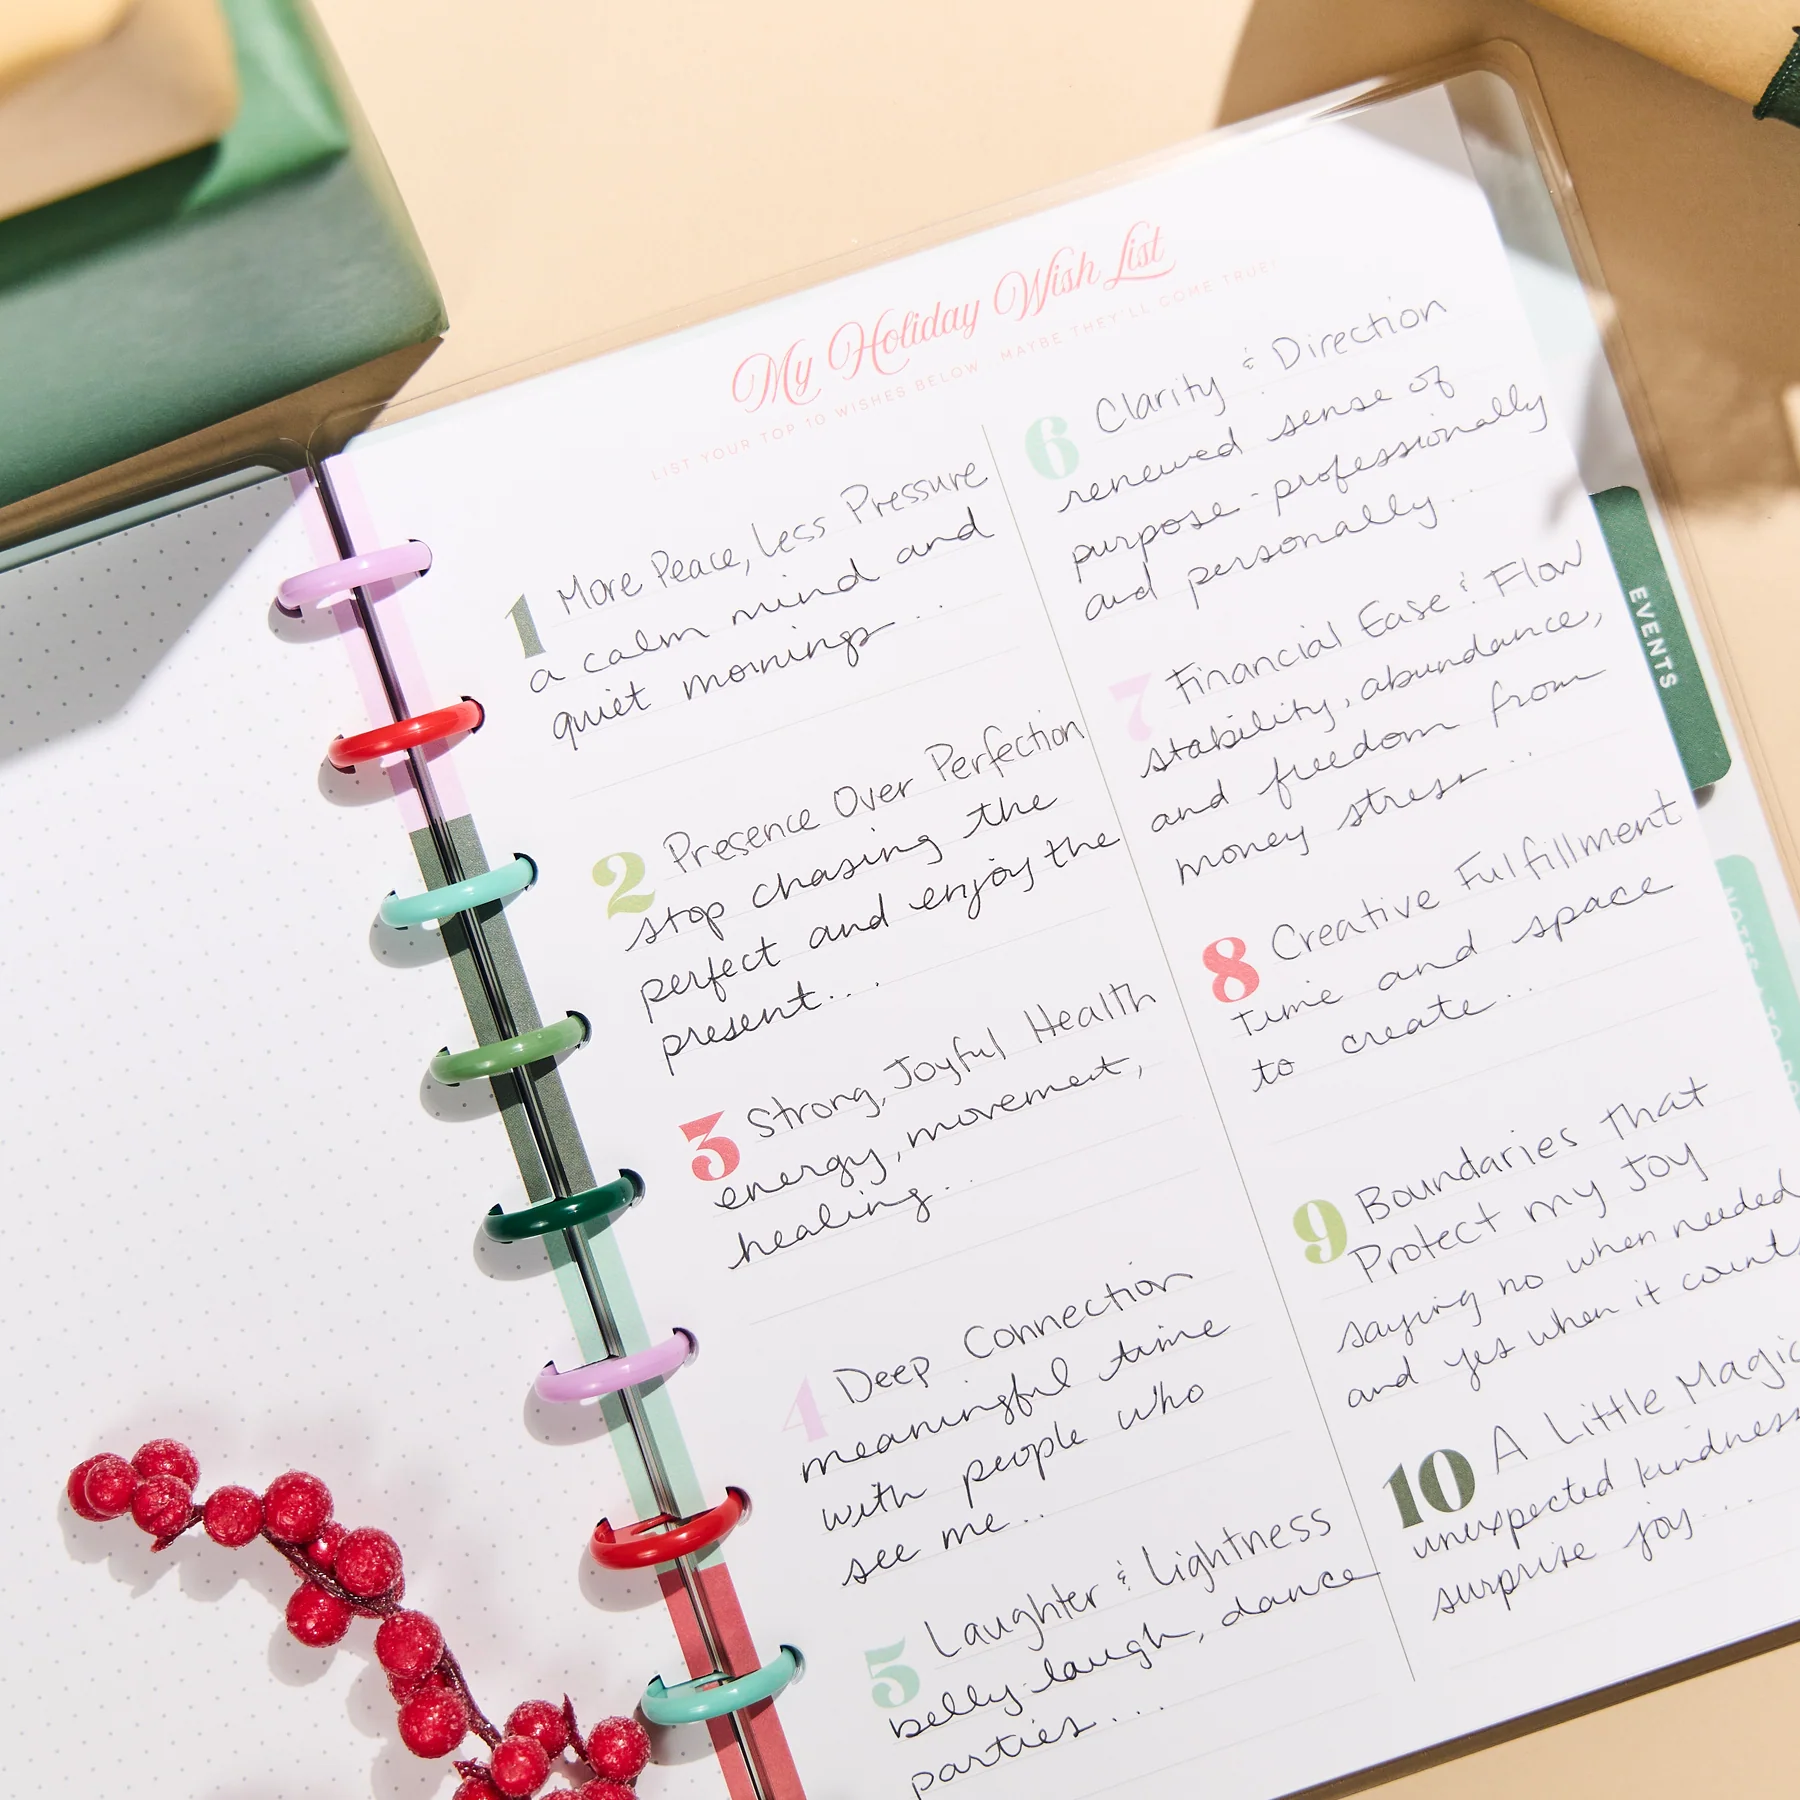 My Holiday Wish List
LIST YOUR TOP 10 WISHES BELOW. MAYBE THEY'LL COME TRUE!
1 More Peace, Less Pressure
a calm mind and
quiet mornings...
2 Presence Over Perfection
stop chasing the
perfect and enjoy the
present...
3 Strong, Joyful Health
energy, movement,
healing..
4 Deep Connection
meaningful time
with people who
see me..
5 Laughter & Lightness
belly-laugh, dance
parties...
6 Clarity & Direction
renewed sense of
purpose - professionally
and personally...
7 Financial Ease & Flow
stability, abundance,
and freedom from
money stress...
8 Creative Fulfillment
time and space
to create...
9 Boundaries that
Protect my Joy
saying no when needed
and yes when it counts
10 A Little Magic
unexpected kindness
surprise joy....
EVENTS
NOTES & TO